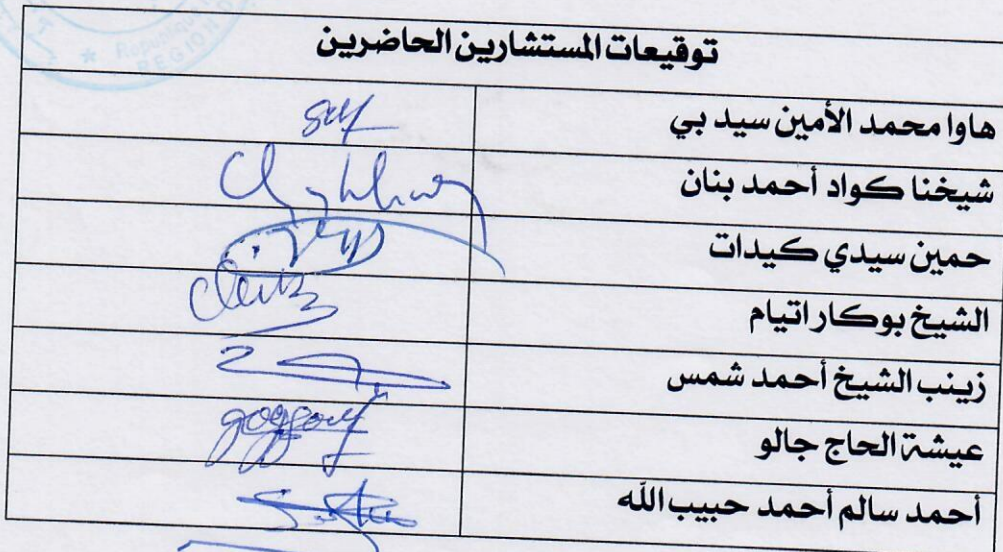 REGION D
توقيعات المستشارين الحاضرين
هاوا محمد الأمين سيد بي
شيخنا كواد أحمد بنان
حمين سيدي كيدات
الشيخ بوكار اتيام
زينب الشيخ أحمد شمس
عيشة الحاج جالو
أحمد سالم أحمد حبيب الله